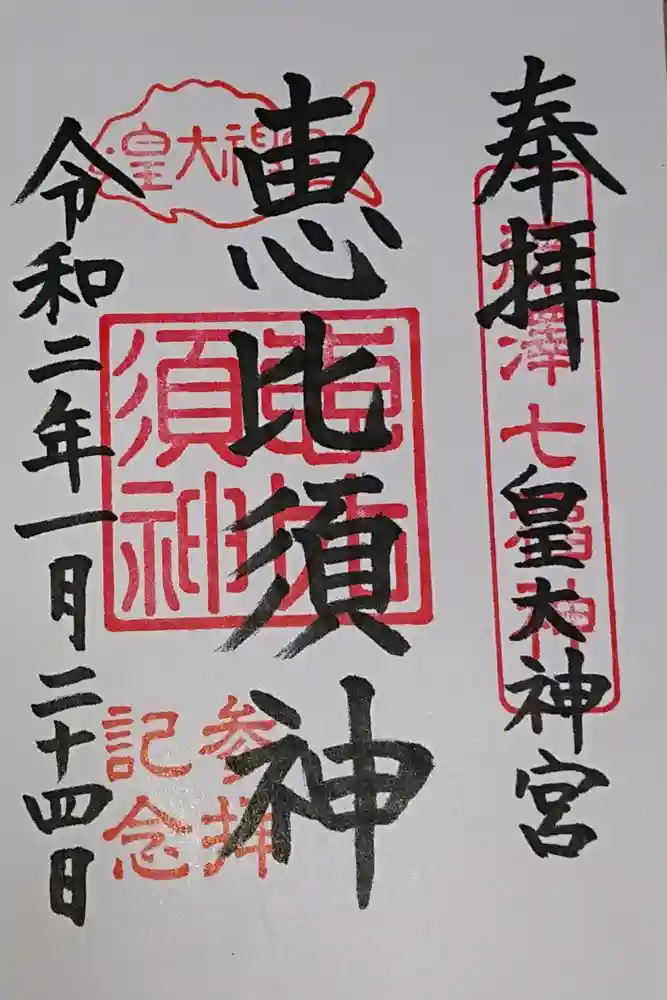 奉拝
藤澤七福神
皇大神宮
恵比須神
皇大神宮
恵比
須神
参拝
記念
令和二年一月二十四日